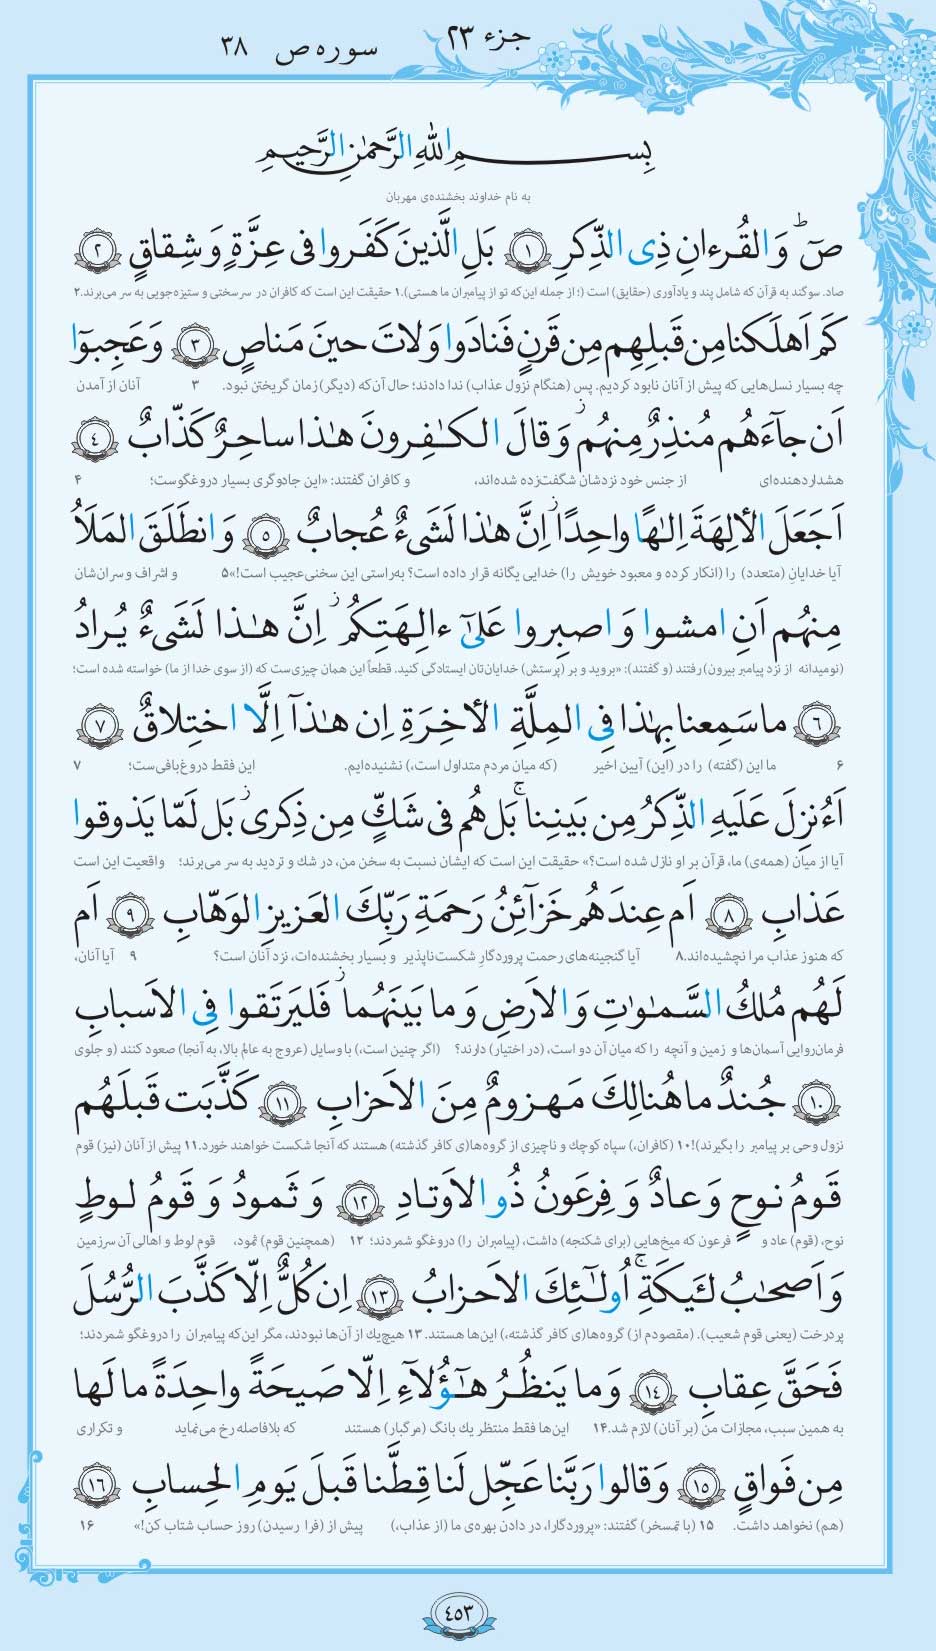 جزء ۲۳
سوره ص ۳۸
بِسمِ اللّٰهِ الرَّحمٰنِ الرَّحيمِ
به نام خداوند بخشنده‌ی مهربان
صٓ ۚ وَالقُرءانِ ذِی الذِّكرِ ﴿۱﴾ بَلِ الَّذينَ كَفَروا فی عِزَّةٍ وَشِقاقٍ ﴿۲﴾
صاد. سوگند به قرآن كه شامل پند و یادآوری (حقایق) است (؛ از جمله این‌كه تو از پیامبران ما هستی).۱ حقیقت این است كه كافران در سرسختی و ستیزه‌جویی به سر می‌برند.۲
كَم اَهلَكنا مِن قَبلِهِم مِن قَرنٍ فَنادَوا وَلاتَ حينَ مَناصٍ ﴿۳﴾ وَعَجِبوٓا
چه بسیار نسل‌هایی كه پیش از آنان نابود كردیم. پس (هنگام نزول عذاب) ندا دادند؛ حال آن‌كه (دیگر) زمان گریختن نبود. ۳ آنان از آمدن
اَن جآءَهُم مُنذِرٌ مِنهُم ۖ وَقالَ الكـٰفِرونَ هـٰذا ساحِرٌ كَذّابٌ ﴿٤﴾
هشداردهنده‌ای از جنس خود نزدشان شگفت‌زده شده‌اند، و كافران گفتند: «این جادوگری بسیار دروغگوست؛ ۴
اَجَعَلَ الألِهَةَ اِلـٰهًا واحِدًا ۖ اِنَّ هـٰذا لَشَیءٌ عُجابٌ ﴿٥﴾ وَانطَلَقَ المَلَأُ
آیا خدایانِ (متعدد) را (انكار كرده و معبود خویش را) خدایی یگانه قرار داده است؟ به‌راستی این سخنی عجیب است!»۵ و اشراف و سران‌شان
مِنهُم اَنِ امشوا وَاصبِروا عَلىٰٓ ءالِهَتِكُم ۖ اِنَّ هـٰذا لَشَیءٌ يُرادُ
(نومیدانه از نزد پیامبر بیرون) رفتند (و گفتند): «بروید و بر (پرستش) خدایان‌تان ایستادگی كنید. قطعاً این همان چیزی‌ست كه (از سوی خدا از ما) خواسته شده است؛
﴿٦﴾ ما سَمِعنا بِهـٰذا فِی المِلَّةِ الأخِرَةِ اِن هـٰذآ اِلَّا اختِلاقٌ ﴿۷﴾
۶ ما این (گفته) را در (این) آیین اخیر (كه میان مردم متداول است،) نشنیده‌ایم. این فقط دروغ‌بافی‌ست؛ ۷
اَءُنزِلَ عَلَيهِ الذِّكرُ مِن بَينِنا ۚ بَل هُم فی شَكٍّ مِن ذِكری ۖ بَل لَمّا يَذوقوا
آیا از میان (همه‌ی) ما، قرآن بر او نازل شده است؟» حقیقت این است كه ایشان نسبت به سخن من، در شك و تردید به سر می‌برند؛ واقعیت این است
عَذابِ ﴿۸﴾ اَم عِندَهُم خَزآئِنُ رَحمَةِ رَبِّكَ العَزيزِ الوَهّابِ ﴿۹﴾ اَم
كه هنوز عذاب مرا نچشیده‌اند.۸ آیا گنجینه‌های رحمت پروردگارِ شكست‌ناپذیر و بسیار بخشنده‌ات، نزد آنان است؟ ۹ آیا آنان،
لَهُم مُلكُ السَّمـٰوٰتِ وَالاَرضِ وَما بَينَهُما ۖ فَليَرتَقوا فِی الاَسبابِ
فرمان‌روایی آسمان‌ها و زمین و آنچه را كه میان آن دو است، (در اختیار) دارند؟ (اگر چنین است،) با وسایل (عروج به عالم بالا، به آنجا) صعود كنند (و جلوی
﴿۱۰﴾ جُندٌ ما هُنالِكَ مَهزومٌ مِنَ الاَحزابِ ﴿۱۱﴾ كَذَّبَت قَبلَهُم
نزول وحی بر پیامبر را بگیرند)!۱۰ (كافران،) سپاه كوچك و ناچیزی از گروه‌ها(ی كافر گذشته) هستند كه آنجا شكست خواهند خورد.۱۱ پیش از آنان (نیز) قوم
قَومُ نوحٍ وَعادٌ وَفِرعَونُ ذُو الاَوتادِ ﴿۱۲﴾ وَثَمودُ وَقَومُ لوطٍ
نوح، (قوم) عاد و فرعون كه میخ‌هایی (برای شكنجه) داشت، (پیامبران را) دروغگو شمردند؛ ۱۲ (همچنین قوم) ثمود، قوم لوط و اهالی آن سرزمین
وَاَصحـٰبُ لئَيكَةِ ۚ اُولـٰٓئِكَ الاَحزابُ ﴿۱۳﴾ اِن كُلٌّ اِلّا كَذَّبَ الرُّسُلَ
پردرخت (یعنی قوم شعیب). (مقصودم از) گروه‌ها(ی كافر گذشته،) این‌ها هستند. ۱۳ هیچ‌یك از آن‌ها نبودند، مگر این‌كه پیامبران را دروغگو شمردند؛
فَحَقَّ عِقابِ ﴿۱٤﴾ وَما يَنظُرُ هـٰٓؤُلآءِ اِلّا صَيحَةً واحِدَةً ما لَها
به همین سبب، مجازات من (بر آنان) لازم شد.۱۴ این‌ها فقط منتظر یك بانگ (مرگبار) هستند كه بلافاصله رخ می‌نماید و تكراری
مِن فَواقٍ ﴿۱٥﴾ وَقالوا رَبَّنا عَجِّل لَنا قِطَّنا قَبلَ يَومِ الحِسابِ ﴿۱٦﴾
(هم) نخواهد داشت. ۱۵ (با تمسخر) گفتند: «پروردگارا، در دادن بهره‌ی ما (از عذاب،) پیش از (فرا رسیدن) روز حساب شتاب كن!» ۱۶
٤٥٣